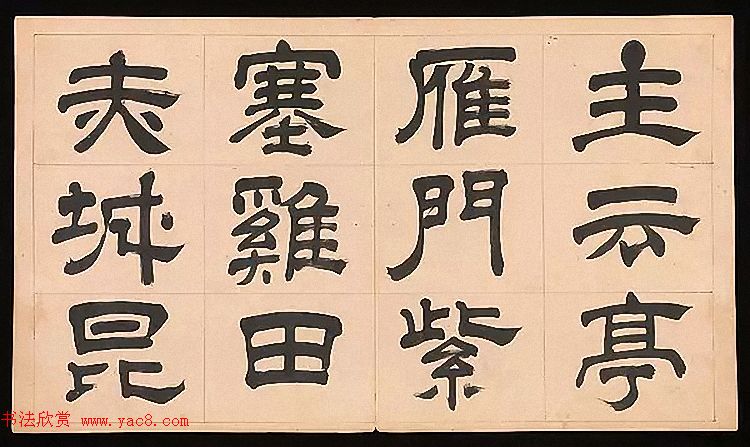 主云亭
雁門紫
塞雞田
赤城昆
书法欣赏 www.yac8.com